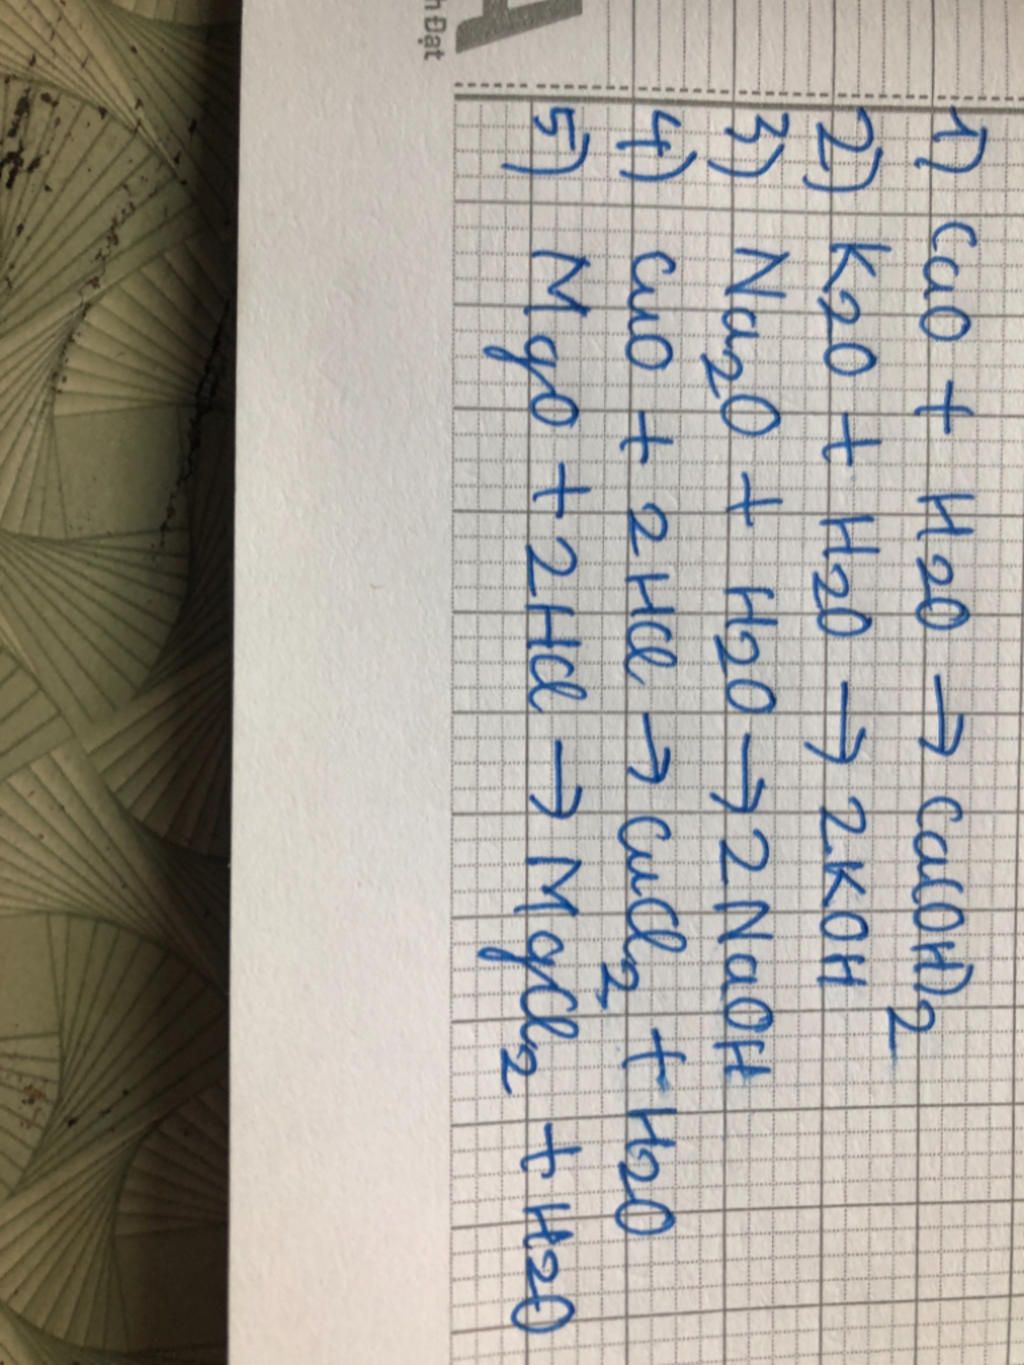 h Đạt
1) CaO + H2O → Ca(OH)2
2) K2O + H2O → 2KOH
3) Na2O + H2O → 2NaOH
4) CuO + 2HCl → CuCl2 + H2O
5) MgO + 2HCl → MgCl2 + H2O